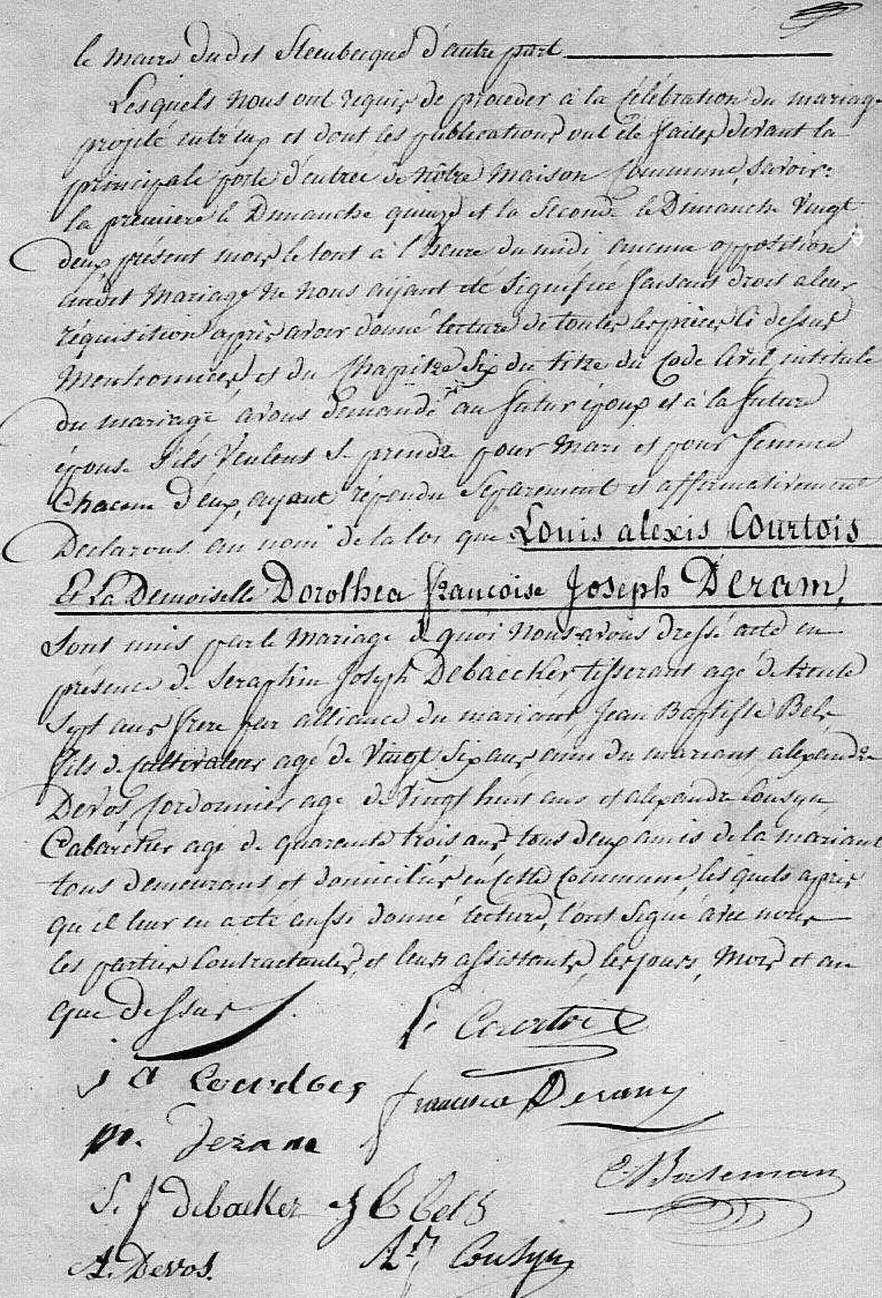 le maire dudit Steenbecque d'autre part
Lesquels nous ont requis de proceder à la Célébration du mariage
projeté entr'eux et dont les publications ont été faites devant la
principale porte d'entrée de nôtre Maison Commune, savoir:
la premiere le Dimanche quinze et la Seconde le Dimanche Vingt
deux présent mois le tout à l'heure du midi, aucune opposition
audit Mariage ne nous aÿant été Signifiée faisant droit a leur
réquisition après avoir donné lecture de toutes les pieces Ci dessus
Mentionnées, et du Chapitre Six du titre du Code Civil, intitulé
du mariage avons demandé au futur époux et à la future
épouse S'ils Veulent Se prendre pour Mari et pour femme
Chacun D'eux, ayant répondu Séparement et affirmativement
Declarons au nom de la loi que Louis alexis Courtois
Et La Demoiselle Dorothea françoise Joseph Deram,
Sont unis par le Mariage de quoi Nous avons dressé acte en
présence de Seraphin Joseph Debaecker tisserant agé de trente
Sept ans frere par alliance du mariant, Jean Baptiste Bels
fils de Cultivateur agé de Vingt Six ans ami du mariant, alexandre
Devos, Cordonnier agé de Vingt huit ans et alexandre Cousyn,
Cabaretier agé de quarente trois ans, tous deux amis de la mariante
tous demeurans et domiciliés en Cette Commune, lesquels après
qu'il leur en a été aussi donné lecture, l'ont Signé avec nous
les parties Contractantes, et leurs assistants, les jours, Mois et an
que dessus
L. Courtois
j A Courtois
francisca Deram
p. deram
C. Bateman
S. j debaeker
j B Bels
A. Devos.
Cousyn